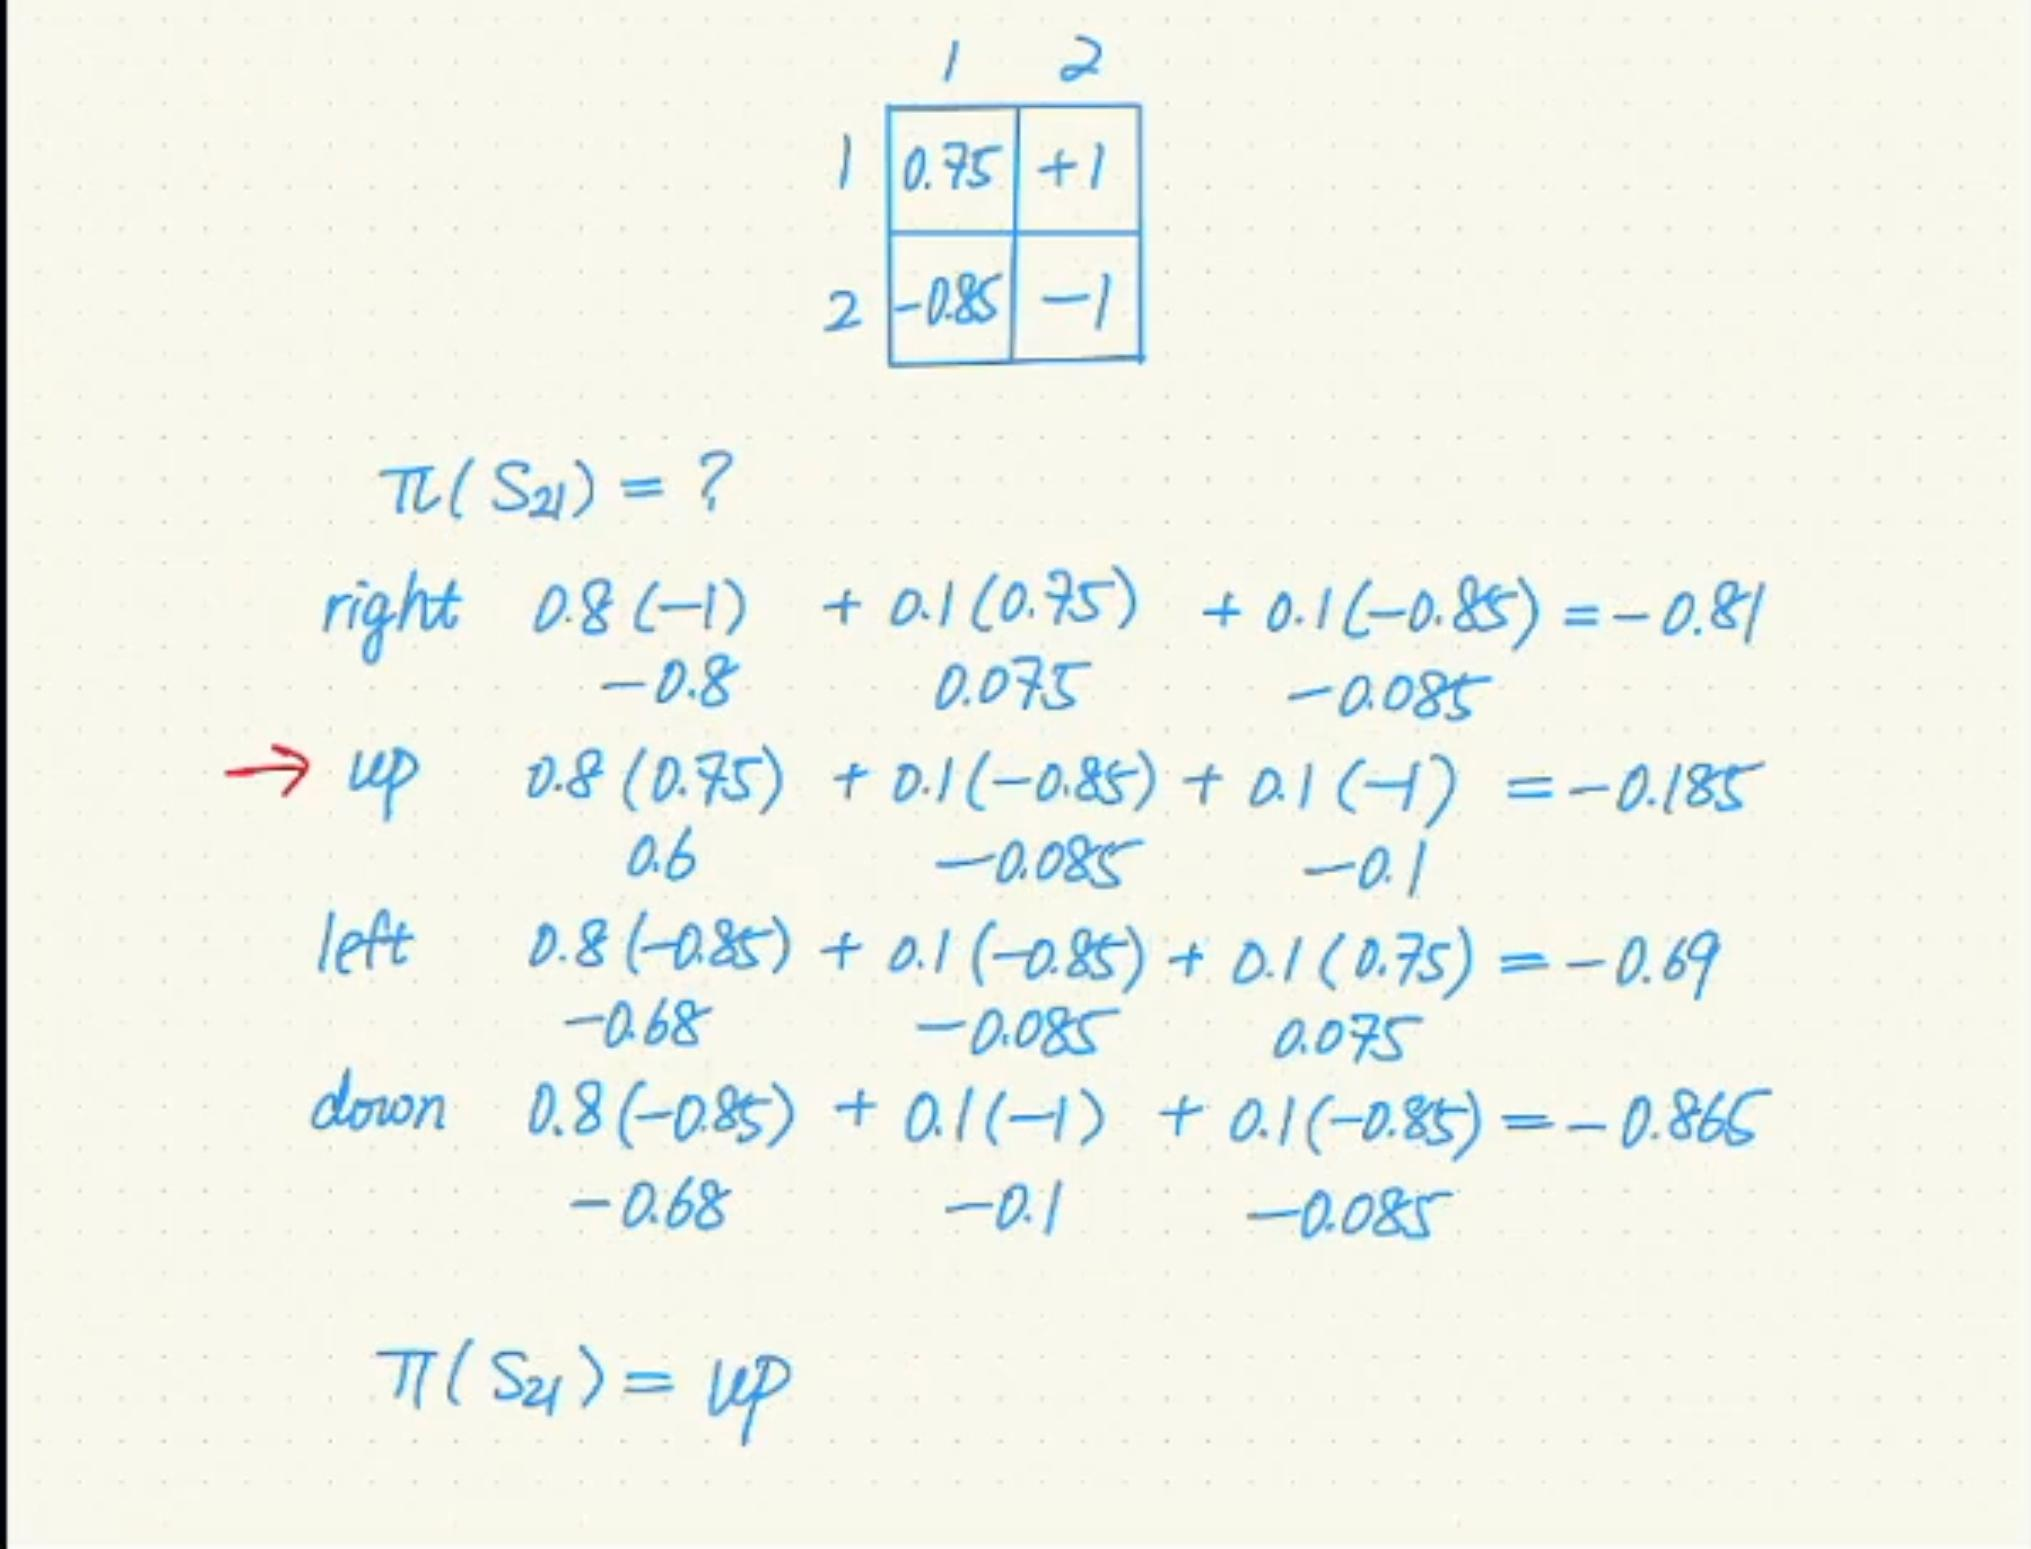 1 2
1 0.75 +1
2 -0.85 -1
π(S21) = ?
right 0.8(-1) + 0.1(0.75) + 0.1(-0.85) = -0.81
-0.8 0.075 -0.085
→ up 0.8(0.75) + 0.1(-0.85) + 0.1(-1) = -0.185
0.6 -0.085 -0.1
left 0.8(-0.85) + 0.1(-0.85) + 0.1(0.75) = -0.69
-0.68 -0.085 0.075
down 0.8(-0.85) + 0.1(-1) + 0.1(-0.85) = -0.865
-0.68 -0.1 -0.085
π(S21) = up